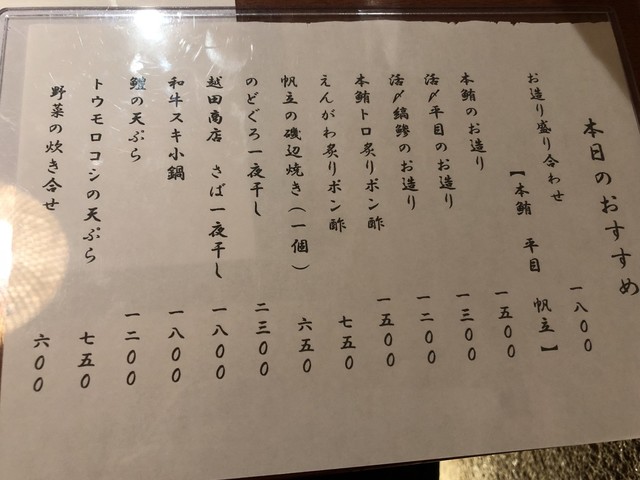 本日のおすすめ
お造り盛り合わせ 一八〇〇
【本鮪 平目 帆立】
本鮪のお造り 一五〇〇
活〆平目のお造り 一三〇〇
活〆縞鯵のお造り 一二〇〇
本鮪トロ炙りポン酢 一五〇〇
えんがわ炙りポン酢 七五〇
帆立の磯辺焼き(一個) 六五〇
のどぐろ一夜干し 二三〇〇
越田商店 さば一夜干し 一八〇〇
和牛スキ小鍋 一八〇〇
鱧の天ぷら 一二〇〇
トウモロコシの天ぷら 七五〇
野菜の炊き合せ 六〇〇